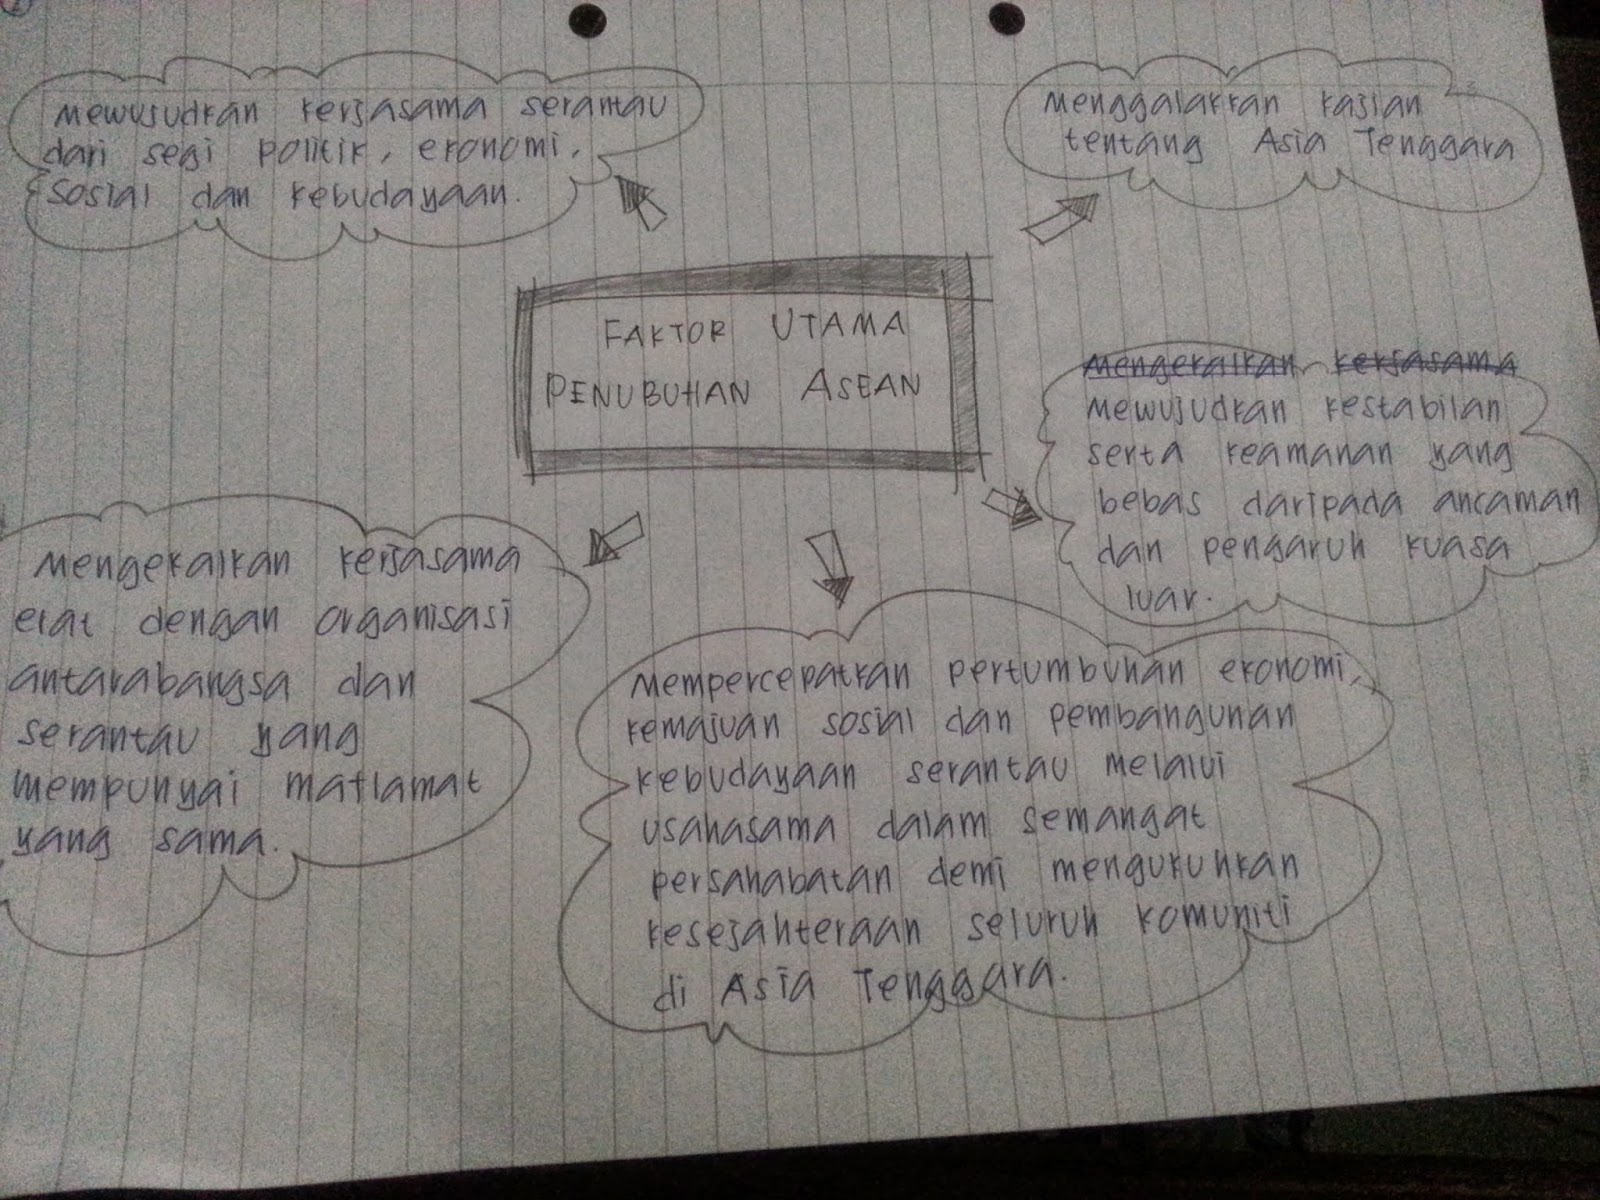 FAKTOR UTAMA
PENUBUHAN ASEAN
Mewujudkan kerjasama serantau
dari segi politik, ekonomi,
sosial dan kebudayaan.
Menggalakkan kajian
tentang Asia Tenggara
Mengekalkan kerjasama
Mewujudkan kestabilan
serta keamanan yang
bebas daripada ancaman
dan pengaruh kuasa
luar.
Mengekalkan kerjasama
erat dengan organisasi
antarabangsa dan
serantau yang
mempunyai matlamat
yang sama.
Mempercepatkan pertumbuhan ekonomi,
kemajuan sosial dan pembangunan
kebudayaan serantau melalui
usahasama dalam semangat
persahabatan demi mengukuhkan
kesejahteraan seluruh komuniti
di Asia Tenggara.